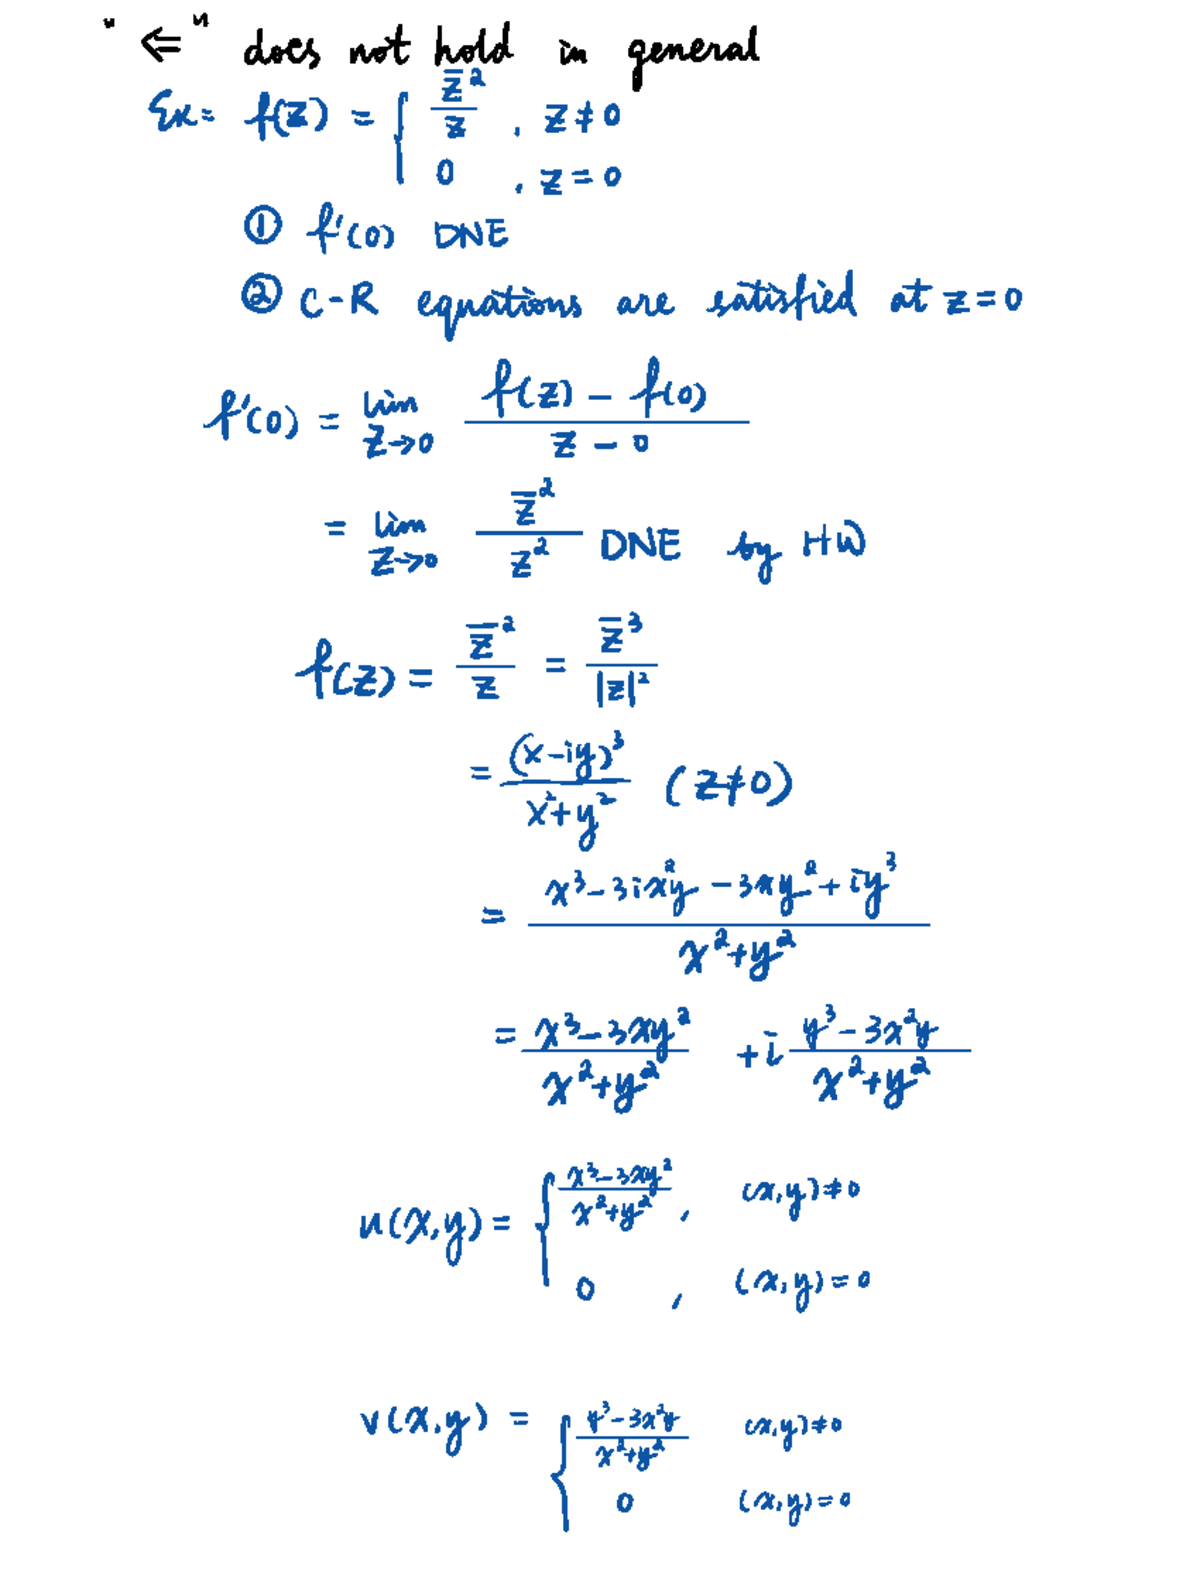 "⇐" does not hold in general
Ex: f(z) = { z̄²/z , z ≠ 0
0 , z = 0
① f'(0) DNE
② C-R equations are satisfied at z = 0
f'(0) = lim_{z→0} (f(z) - f(0))/(z - 0)
= lim_{z→0} z̄²/z² DNE by HW
f(z) = z̄²/z = z̄³/|z|²
= (x-iy)³/(x²+y²) (z≠0)
= (x³ - 3ix²y - 3xy² + iy³)/(x²+y²)
= (x³-3xy²)/(x²+y²) + i (y³-3x²y)/(x²+y²)
u(x,y) = { (x³-3xy²)/(x²+y²) , (x,y)≠0
0 , (x,y)=0
v(x,y) = { (y³-3x²y)/(x²+y²) (x,y)≠0
0 (x,y)=0